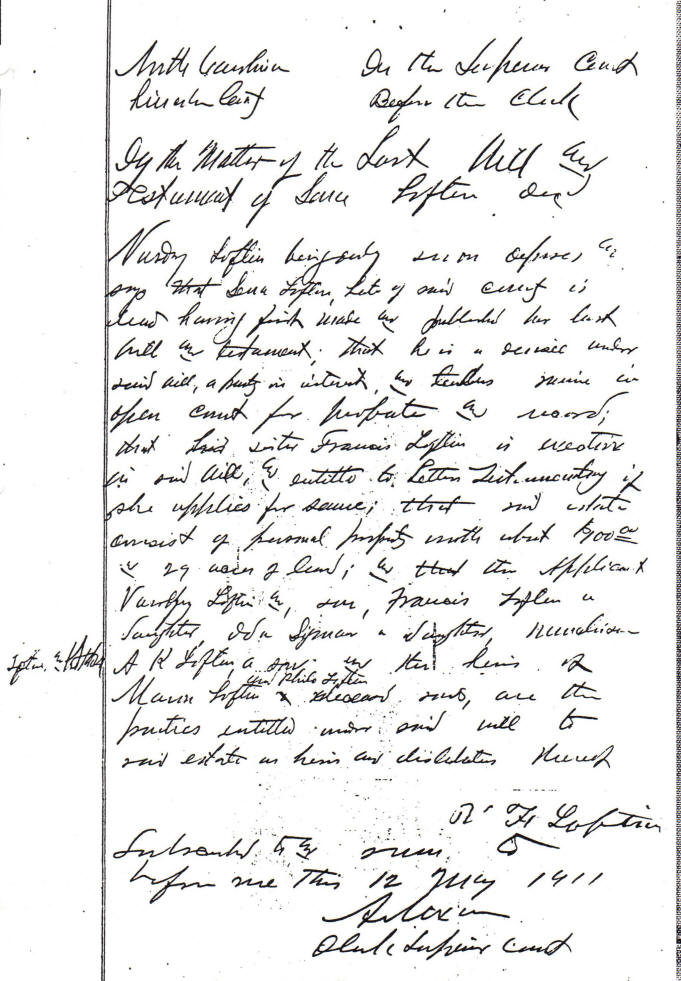 North Carolina In the Superior Court
Lincoln County Before the Clerk
In the Matter of the Last Will and
Testament of Loftin decd
Vardry Loftin being duly sworn deposes and
says that Loftin, late of said county is
dead having first made and published her last
will and testament; that he is a devisee under
said will, a party in interest, and tenders same in
open court for probate and record;
that his sister Francis Loftin is executrix
in said will, and entitled to Letters Testamentary if
she applies for same; that said estate
consist of personal property worth about $ 00
& 29 acres of land; and that the Applicant
Vardry Loftin a son, Francis Loftin a
daughter, a daughter,
Loftin, &
A K Loftin a son, and the heirs of
and Philo Loftin
Loftin deceased sons, are the
parties entitled under said will to
said estate as heirs and distributes thereof
R F Loftin
Subscribed to and sworn to
before me this 12 May 1911
Clerk Superior Court